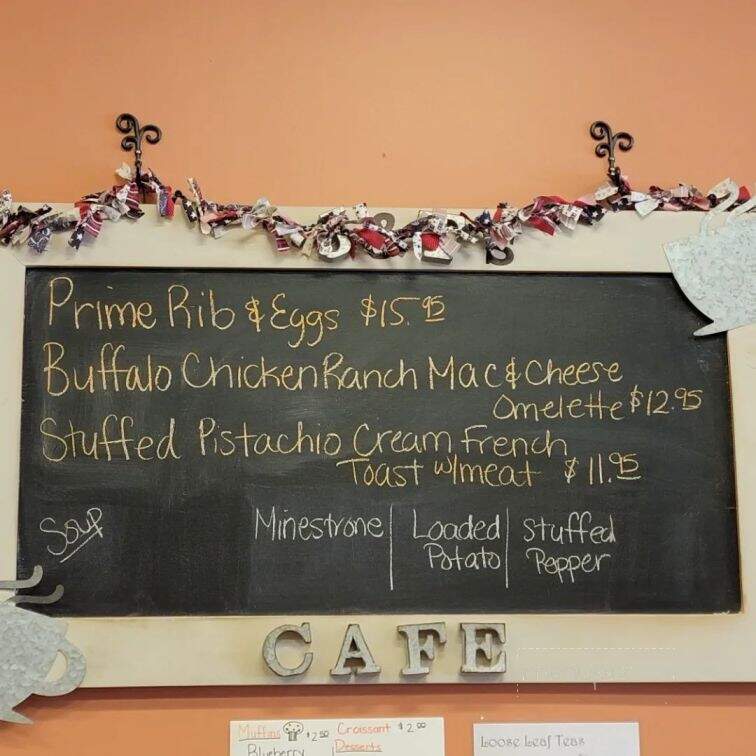 Prime Rib & Eggs $15.95
Buffalo Chicken Ranch Mac & Cheese
Omelette $12.95
Stuffed Pistachio Cream French
Toast w/meat $11.95
Soup Minestrone Loaded Stuffed
Potato Pepper
CAFE
Muffins $2.50 Croissant $2.00
Blueberry Desserts
Loose Leaf Teas